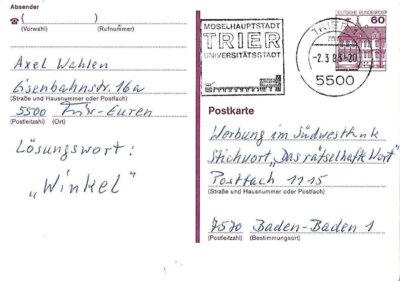 Absender
☎ ( )
(Vorwahl) (Rufnummer)
Axel Wahlen
Eisenbahnstr. 16a
(Straße und Hausnummer oder Postfach)
5500 Trier-Euren
(Postleitzahl) (Ort)
Lösungswort:
"Winkel"
MOSELHAUPTSTADT
TRIER
UNIVERSITÄTSSTADT
TRIER 1
5500
DEUTSCHE BUNDESPOST
60
Postkarte
Werbung im Südwestfunk
Stichwort "Das rätselhafte Wort"
Postfach 1115
(Straße und Hausnummer oder Postfach)
7570 Baden-Baden 1
(Postleitzahl) (Bestimmungsort)